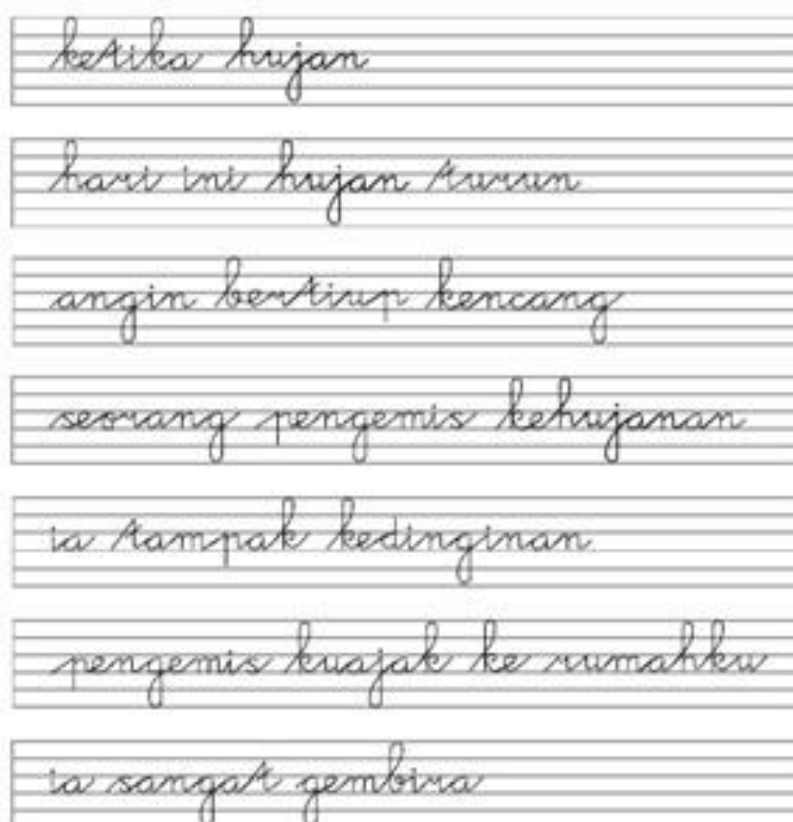 ketika hujan
hari ini hujan turun
angin bertiup kencang
seorang pengemis kehujanan
ia tampak kedinginan
pengemis kuajak ke rumahku
ia sangat gembira